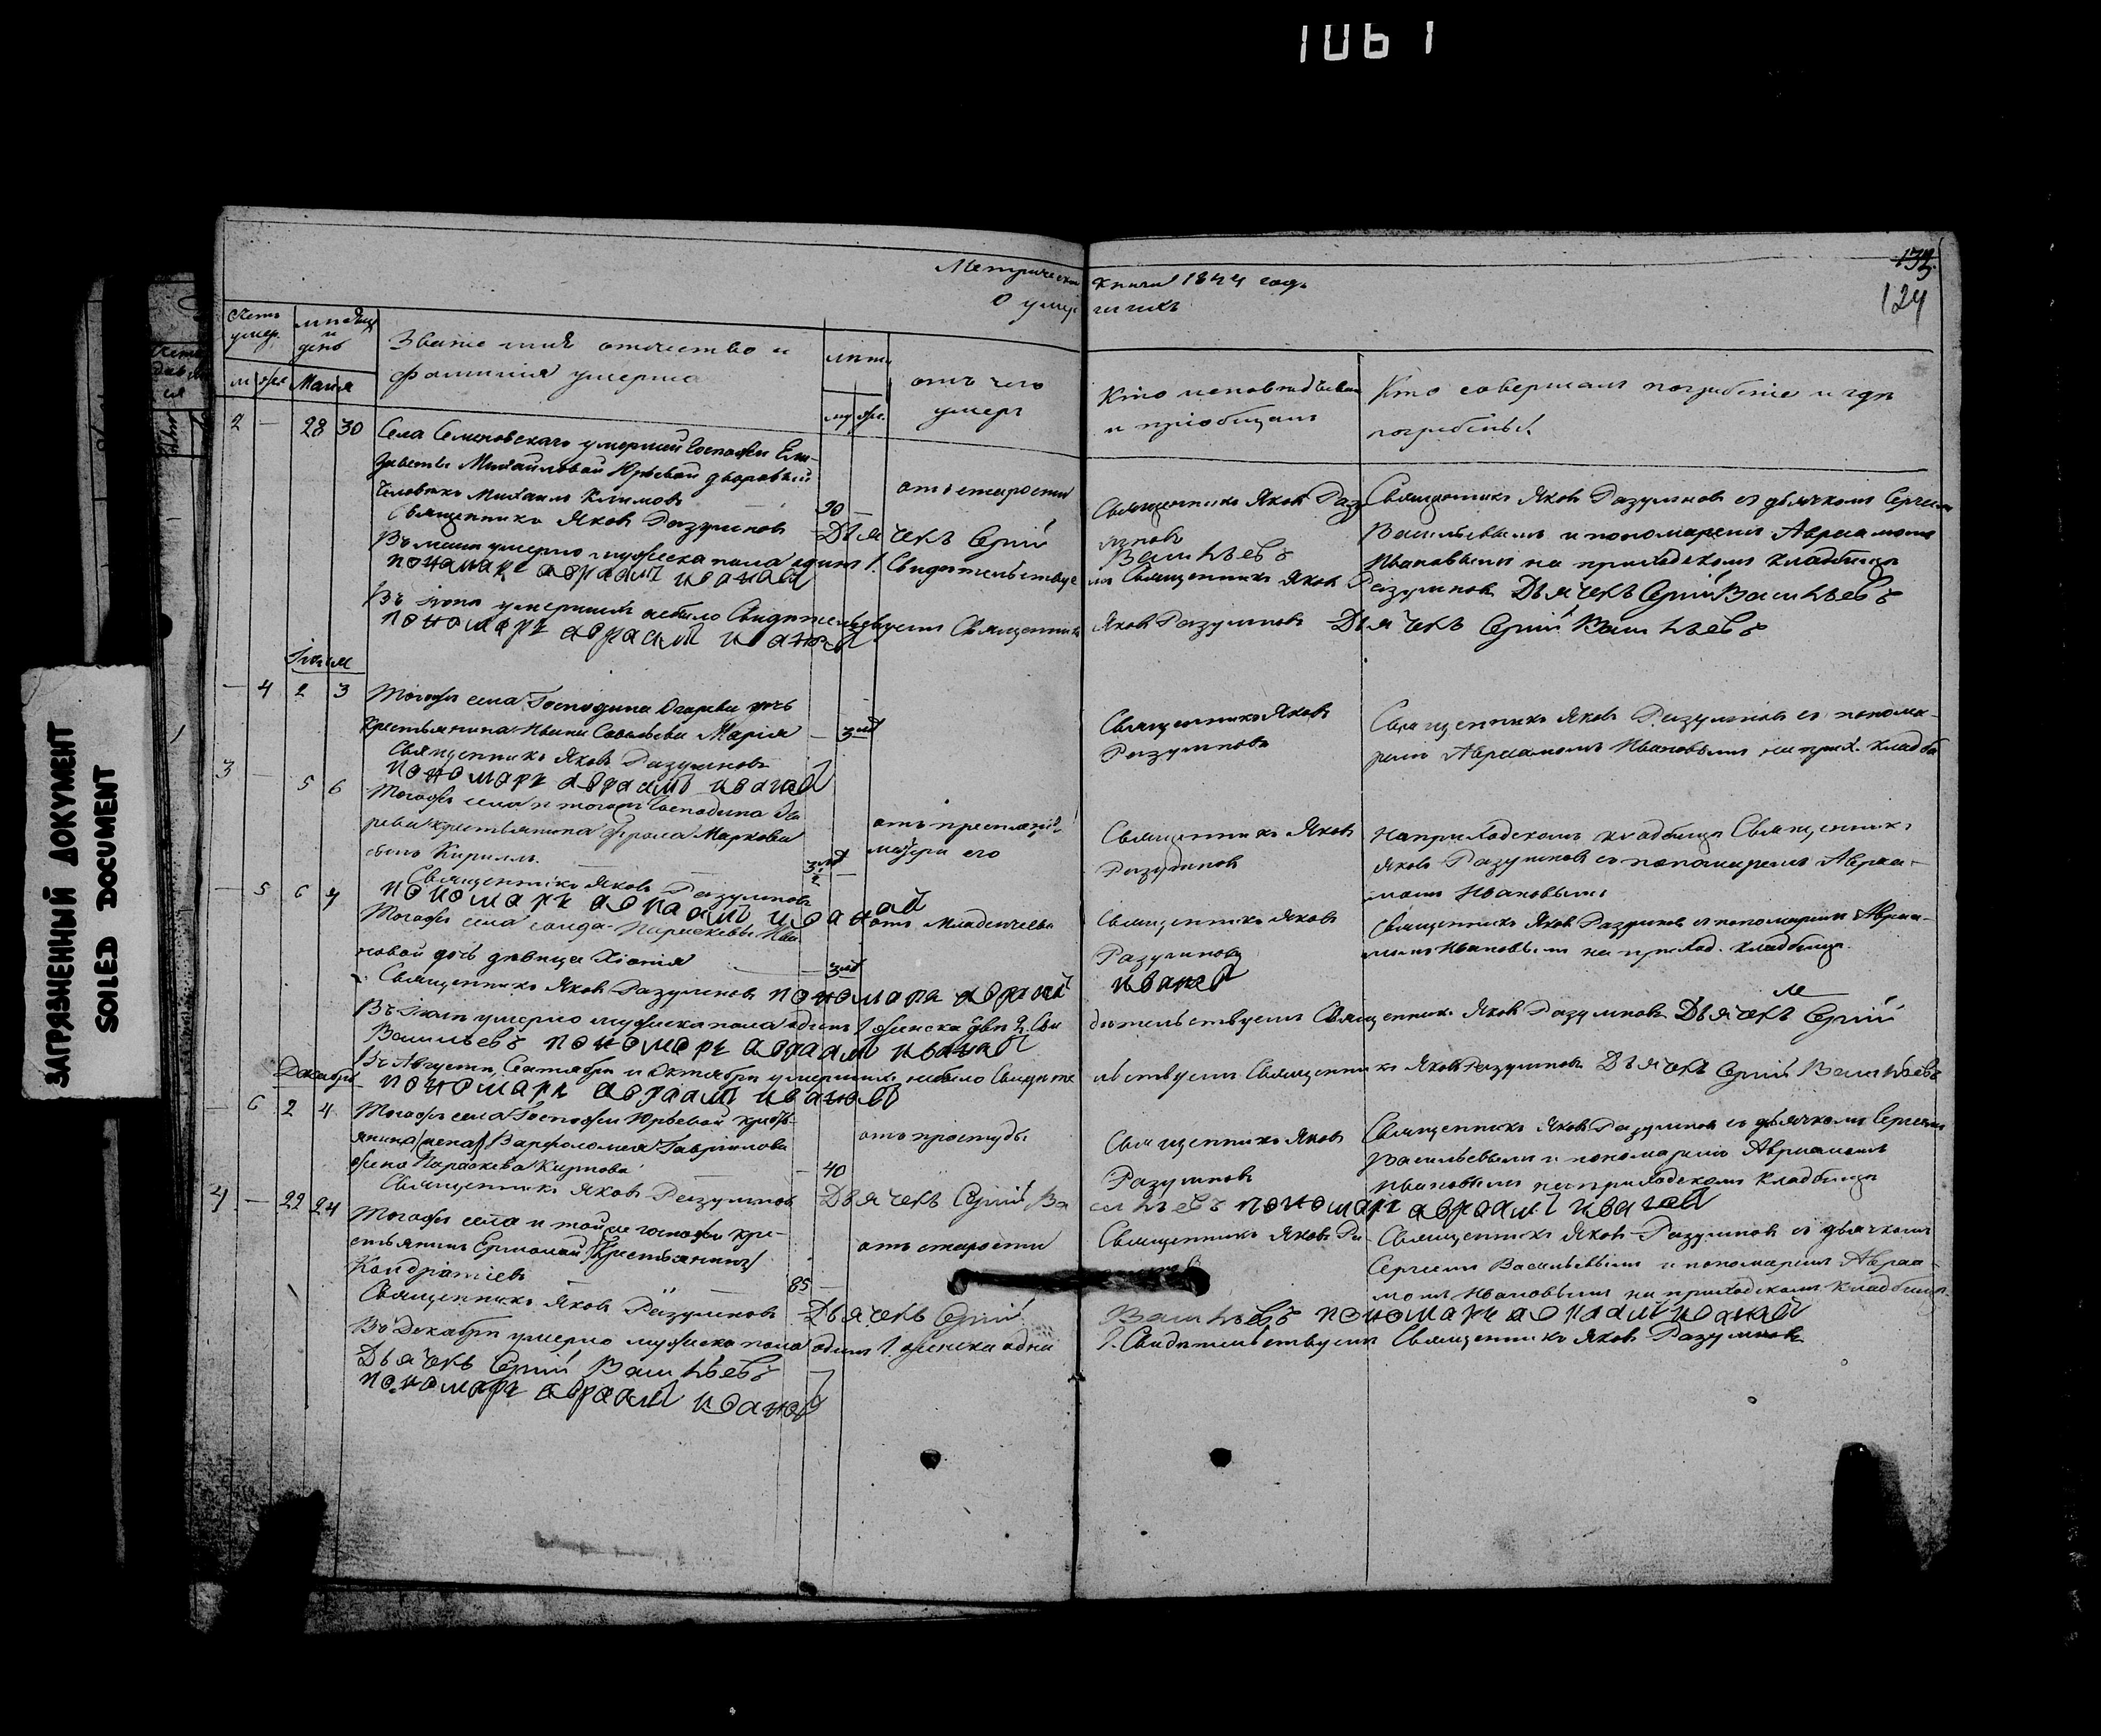 1061
ЗАГРЯЗНЕННЫЙ ДОКУМЕНТ
SOILED DOCUMENT
Метрической книги 1844 года
О умерших
124
Счетъ умер.
мѣсяцъ и день
Званіе имя отечество и
фамилія умерша
лѣта
отъ чего
умеръ
Кто исповѣдывал
и пріобщалъ
Кто совершалъ погребеніе и гдѣ
погребены
м жен
Маія
му же.
2 — 28 30
Села Семеновскаго умерший Госпожи Ели-
заветы Михайловой Юрьевой дворовый
человѣкъ Михаилъ Климовъ
90 —
отъ старости
Священникъ Яковъ Раз
умновъ
Священникъ Яковъ Разумновъ съ дьячкомъ Сергіем
Васильевымъ и пономаремъ Авраамомъ
Ивановымъ на приходскомъ кладбищѣ
Священникъ Яковъ Разумновъ Дьячекъ Сергій Васильевъ
пономарь авраамъ ивановъ
Въ маіи умерло мужеска пола одинъ 1. Свидѣтельствуемъ Священникъ Яковъ Разумновъ Дьячекъ Сергій Васильевъ
Въ іюнѣ умершихъ небыло Свидѣтельствуемъ Священникъ Яковъ Разумновъ Дьячекъ Сергій Васильевъ
пономарь авраамъ ивановъ
— 4 2 3
Тогожъ села Господина Огарева дочь
крестьянина Ивана Савельева Марія
— 3
Священникъ Яковъ
Разумновъ
Священникъ Яковъ Разумновъ съ понома-
ремъ Авраамомъ Ивановымъ на прих. кладби
Священникъ Яковъ Разумновъ
пономарь авраамъ ивановъ
3 — 5 6
Тогожъ села и тогожъ Господина Ога
рева крестьянина Фрола Маркова
сынъ Кириллъ.
матери его
Священникъ Яковъ
Разумновъ
На приходскомъ кладбищѣ Священникъ
Яковъ Разумновъ съ пономаремъ Авраа-
момъ Ивановымъ
Священникъ Яковъ Разумновъ
пономарь авраамъ ивановъ
— 5 6 7
Тогожъ села солда. Парасковьи Ива
новой дочь дѣвица Хіонія
— 3
отъ младенчества
Священникъ Яковъ
Разумновъ
Священникъ Яковъ Разумновъ съ пономаремъ Авраа-
момъ Ивановымъ на приход. кладбищѣ.
Священникъ Яковъ Разумновъ пономарь авраамъ ивановъ
Въ Іюлѣ умерло мужеска пола одинъ 1 женска двѣ 2. Сви
дѣтельствуемъ Священникъ Яковъ Разумновъ Дьячекъ Сергій
Васильевъ пономарь авраамъ ивановъ
Въ Августѣ, Сентябрѣ и Октябрѣ умершихъ небыло Свидѣте
льствуемъ Священникъ Яковъ Разумновъ Дьячекъ Сергій Васильевъ
пономарь авраамъ ивановъ
Декабрь
— 6 2 4
Тогожъ села Госпожи Юрьевой крестья-
янина Варфоломея Гаврилова
жена Параскева Карпова
— 40
отъ простуды
Священникъ Яковъ
Разумновъ
Священникъ Яковъ Разумновъ съ дьячкомъ Сергіемъ
Васильевымъ и пономаремъ Авраамомъ
Ивановымъ на приходскомъ кладбищѣ
Священникъ Яковъ Разумновъ Дьячекъ Сергій Васильевъ пономарь авраамъ ивановъ
4 — 22 24
Тогожъ села и тойже госпожи кре-
стьянинъ Ермолай
Кондратіевъ
85 —
отъ старости
Священникъ Яковъ Ра-
Священникъ Яковъ Разумновъ съ дьячкомъ
Сергіемъ Васильевымъ и пономаремъ Авраа-
момъ Ивановымъ на приходскомъ кладбищѣ.
Священникъ Яковъ Разумновъ Дьячекъ Сергій Васильевъ пономарь авраамъ ивановъ
Въ Декабрѣ умерло мужеска пола одинъ 1. женска одна 1. Свидѣтельствуемъ Священникъ Яковъ Разумновъ
Дьячекъ Сергій Васильевъ
пономарь авраамъ ивановъ